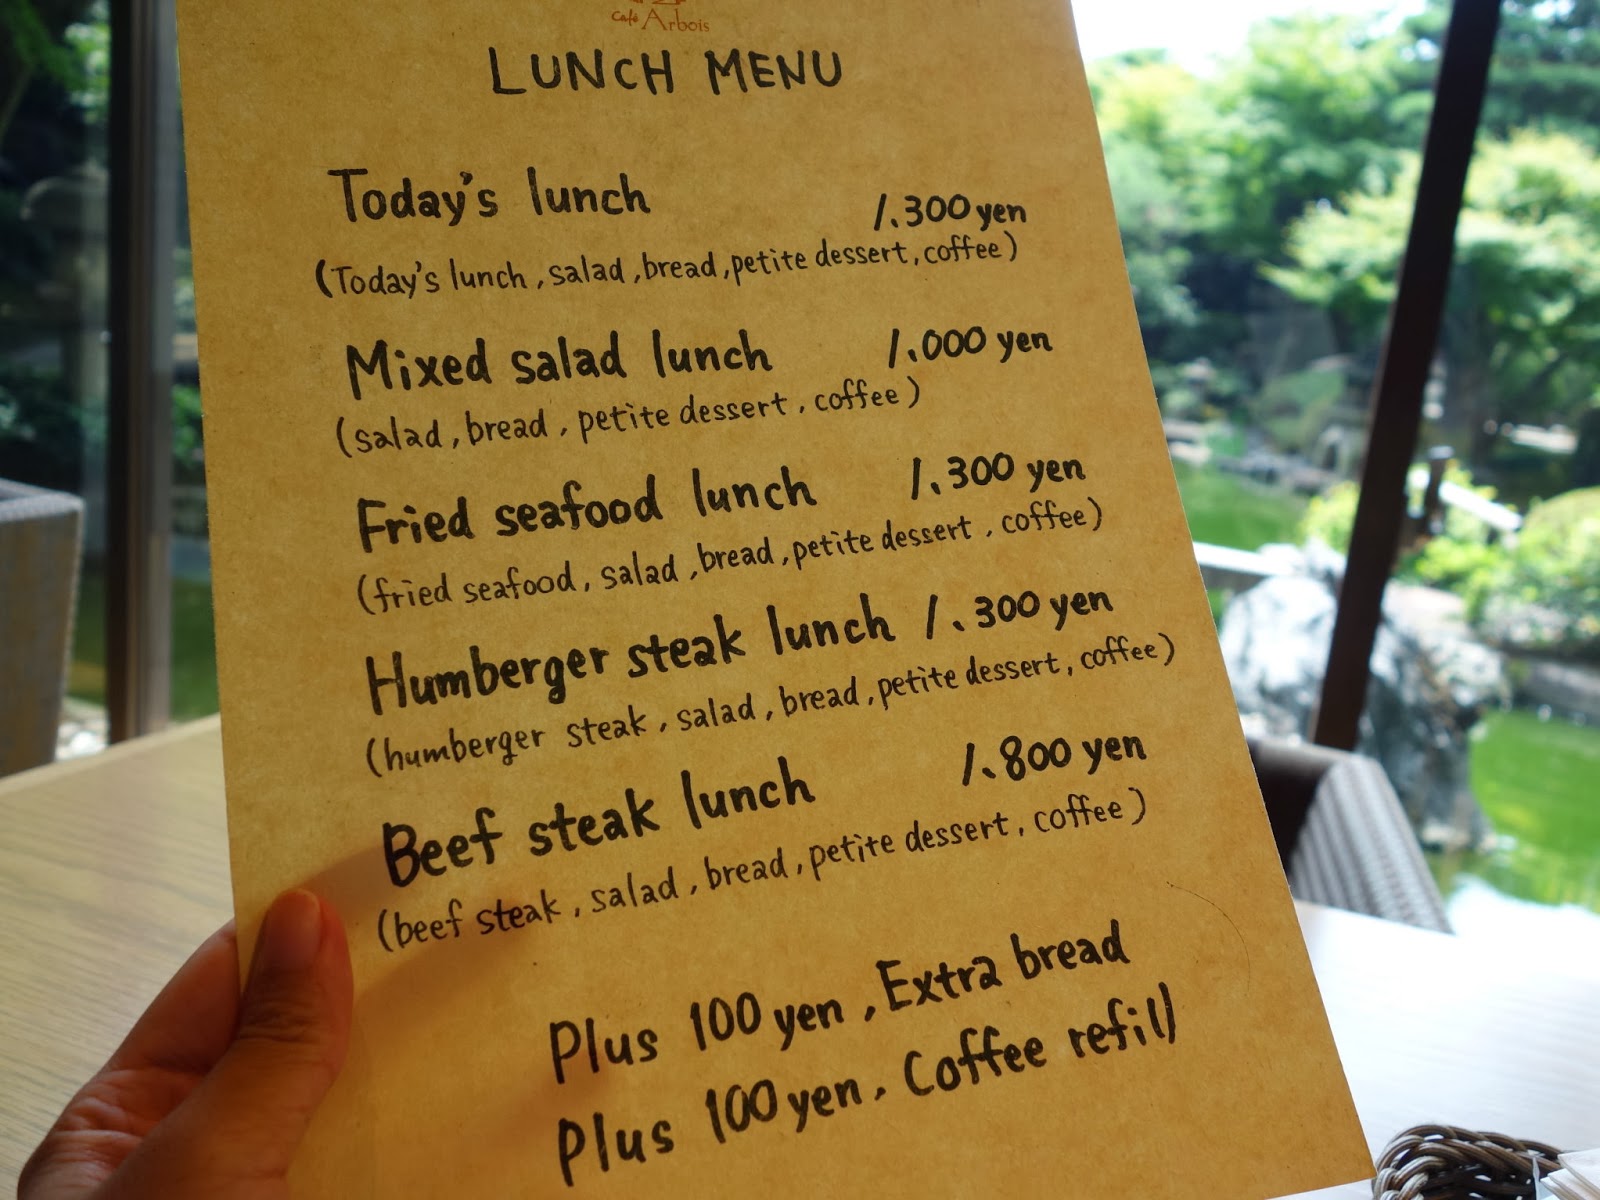 Café Arbois
LUNCH MENU
Today's lunch 1.300 yen
(Today's lunch, salad, bread, petite dessert, coffee)
Mixed salad lunch 1.000 yen
(salad, bread, petite dessert, coffee)
Fried seafood lunch 1.300 yen
(fried seafood, salad, bread, petite dessert, coffee)
Humberger steak lunch 1.300 yen
(humberger steak, salad, bread, petite dessert, coffee)
Beef steak lunch 1.800 yen
(beef steak, salad, bread, petite dessert, coffee)
Plus 100 yen, Extra bread
Plus 100 yen, Coffee refill